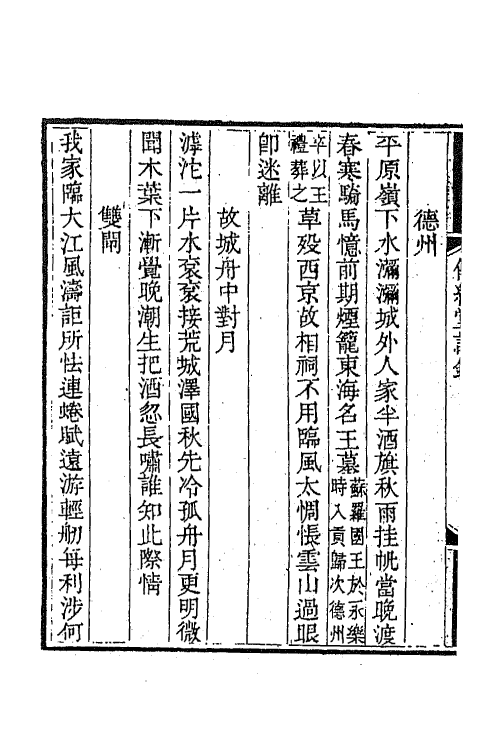 德州
平原嶺下水瀰瀰城外人家半酒旗秋雨挂帆當晚渡
春寒騎馬憶前期煙籠東海名王墓蘇羅國王於永樂時入貢歸次德州
卒以王禮葬之草歿西京故相祠不用臨風太惆悵雲山過眼
卽迷離
故城舟中對月
滹沱一片水袞袞接荒城澤國秋先冷孤舟月更明微
聞木葉下漸覺晚潮生把酒忽長嘯誰知此際情
雙閘
我家臨大江風濤詎所怯連蜷賦遠游輕舠每利涉何